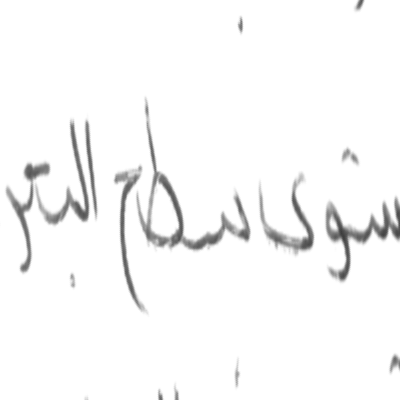 ستوى سطح البحر